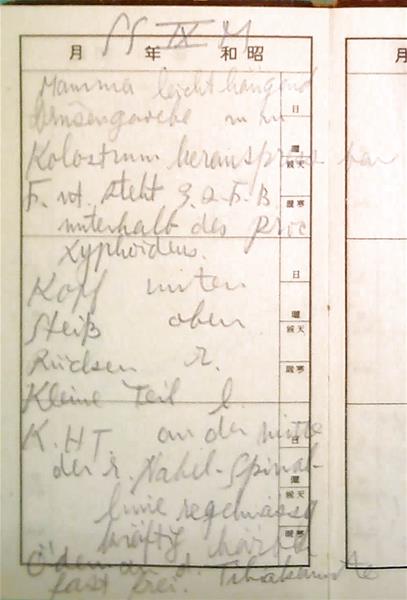 昭和 年 月
IX
Mamma leicht hängend
Drüsengewebe
Kolostrum herauspress bar
F. ut. steht 3 Q. F. B.
unterhalb des Proc
xyphoideus.
Kopf unten
Steiß oben
Rücken r.
Kleine Teil l.
K. HT an der mitte
der r. Nabel-Spinal-
linie regelmässig
kräftig hörbar
Ödem an d. Tibiakante
fast frei.
日
曜
天候
寒暖
日
曜
天候
寒暖
日
曜
天候
寒暖
月